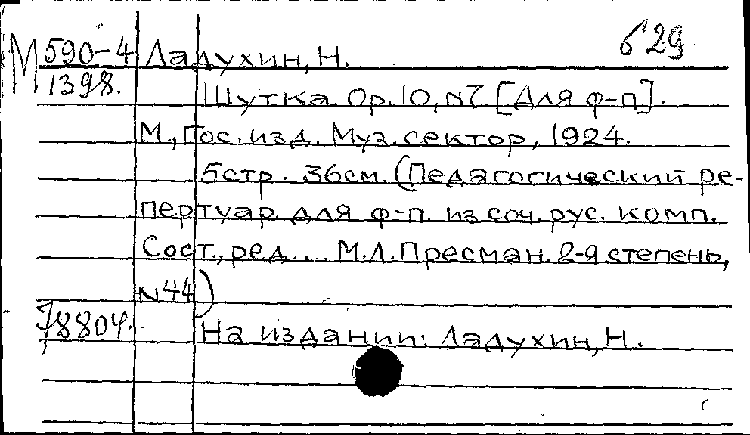 629
М 590-4 Ладухин, Н.
1398.
Шутка. Op. 10, N7. [Для ф-п].
М., Гос. изд. Муз. сектор, 1924.
5стр. 36см. (Педагогический ре-
пертуар для ф-п. из соч. рус. комп.
Сост., ред. ... М.Л. Пресман. 2-я степень,
N44)
78804. На издании: Ладухин, Н.